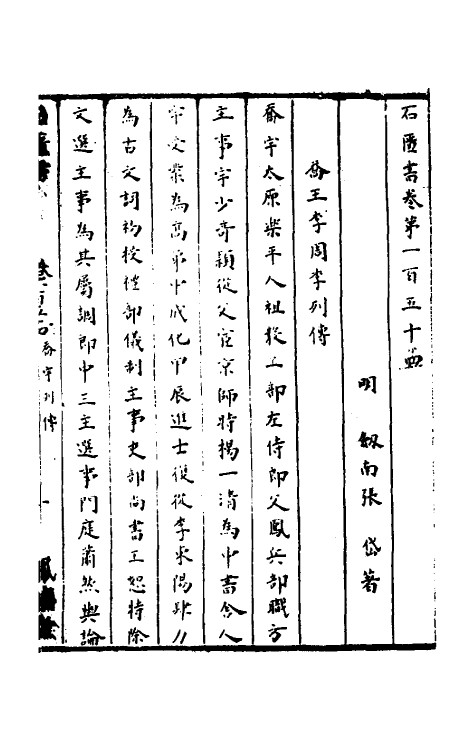 石匱書卷第一百五十四
明　劔南張　岱著
喬王李周李列傳
喬宇太原樂平人祖毅工部左侍郎父鳳兵部職方
主事宇少奇穎從父宦京師時楊一清為中書舍人
宇受業為高弟中成化甲辰進士復從李東陽肆力
為古文詞初授禮部儀制主事吏部尚書王恕特除
文選主事為其屬調郎中三主選事門庭蕭然輿論
石匱書
喬宇列傳
一
鳳嬉堂